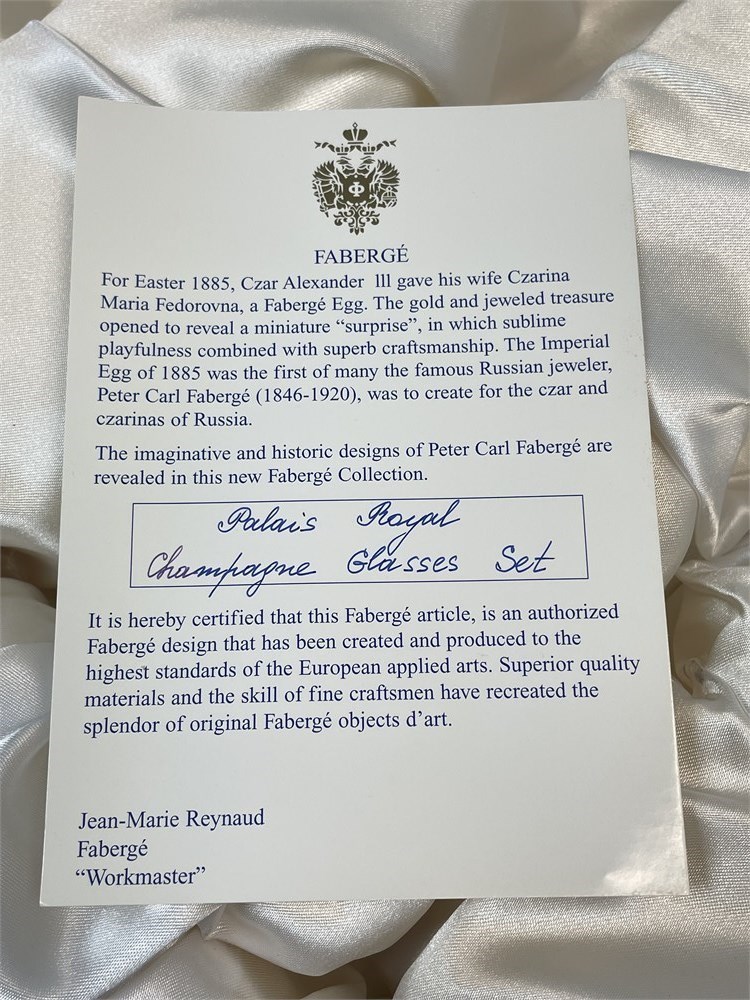 Ф
FABERGÉ
For Easter 1885, Czar Alexander lll gave his wife Czarina
Maria Fedorovna, a Fabergé Egg. The gold and jeweled treasure
opened to reveal a miniature “surprise”, in which sublime
playfulness combined with superb craftsmanship. The Imperial
Egg of 1885 was the first of many the famous Russian jeweler,
Peter Carl Fabergé (1846-1920), was to create for the czar and
czarinas of Russia.
The imaginative and historic designs of Peter Carl Fabergé are
revealed in this new Fabergé Collection.
Palais Royal
Champagne Glasses Set
It is hereby certified that this Fabergé article, is an authorized
Fabergé design that has been created and produced to the
highest standards of the European applied arts. Superior quality
materials and the skill of fine craftsmen have recreated the
splendor of original Fabergé objects d’art.
Jean-Marie Reynaud
Fabergé
“Workmaster”